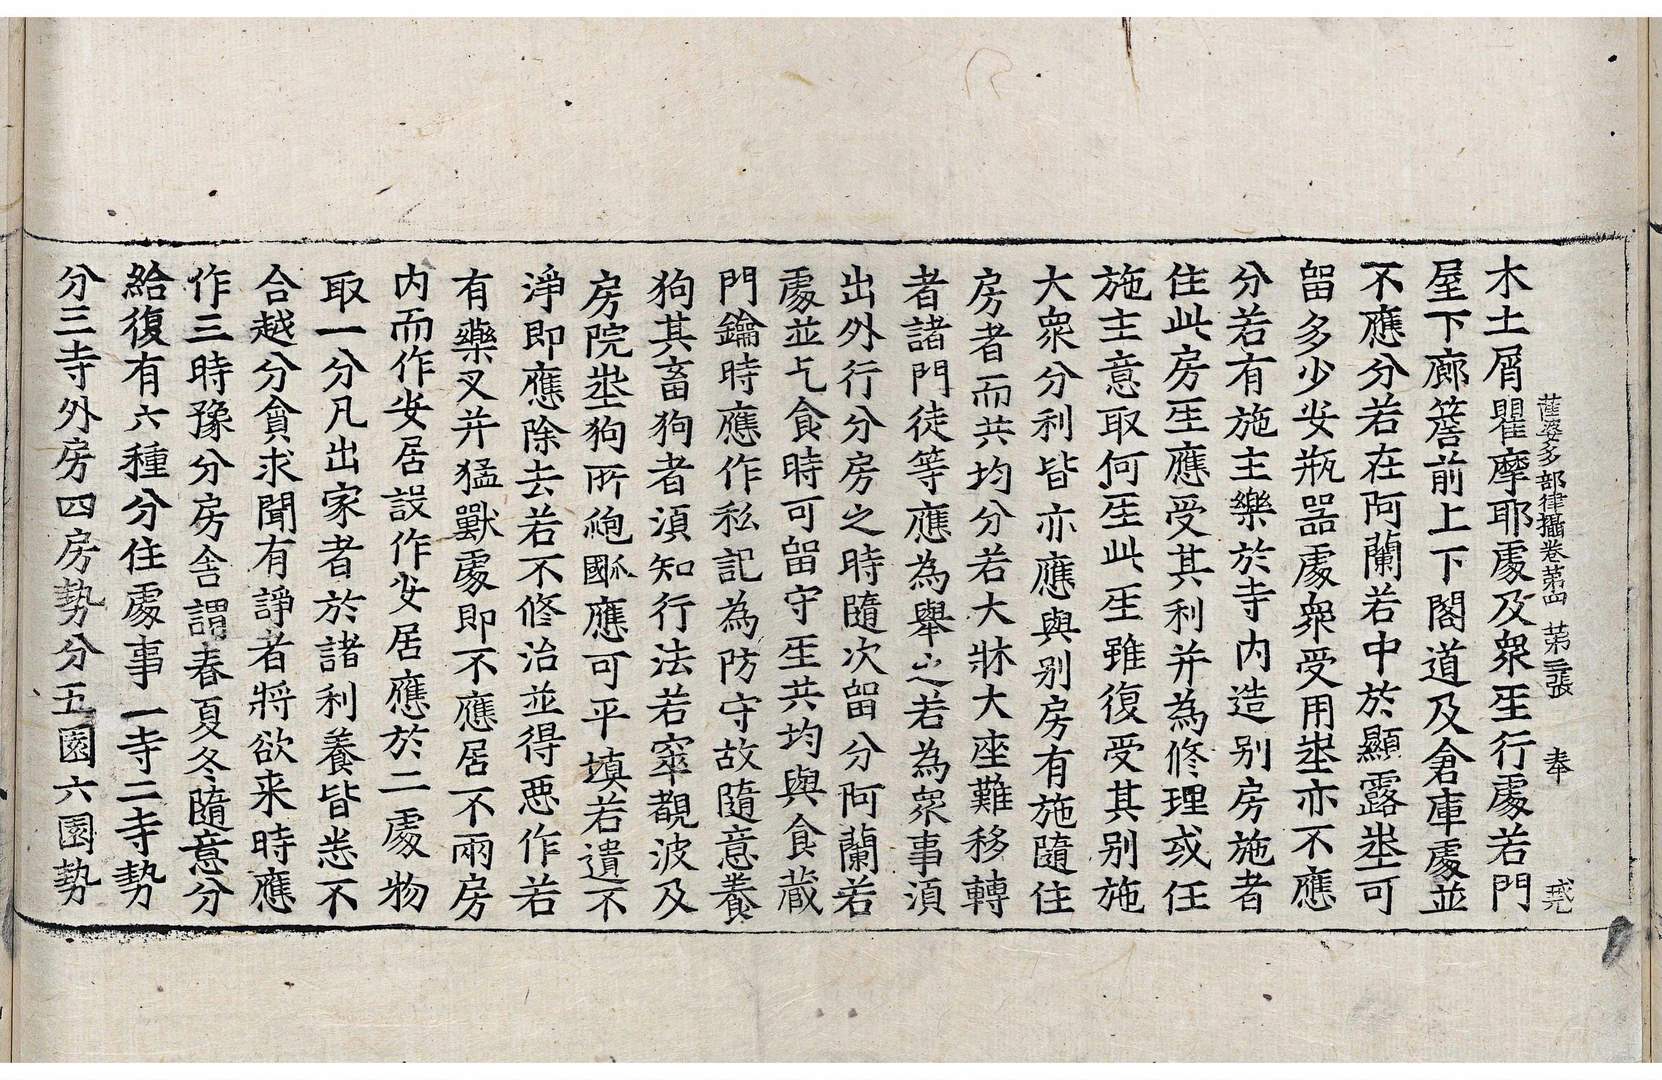 薩婆多部律攝卷第四　第三張　奉　戒
木土屑瞿摩耶處及衆𤯔行處若門
屋下廊簷前上下閣道及倉庫處並
不應分若在阿蘭若中於顯露𡊄可
留多少安瓶器處衆受用𡊄亦不應
分若有施主樂於寺内造别房施者
住此房𤯔應受其利并為修理或任
施主意取何𤯔此𤯔雖復受其别施
大衆分利皆亦應與别房有施隨住
房者而共均分若大牀大座難移轉
者諸門徒等應為舉之若為衆事湏
出外行分房之時隨次留分阿蘭若
處並乞食時可留守𤯔共均與食蔵
門鑰時應作私記為防守故隨意養
狗其畜狗者湏知行法若窣覩波及
房院𡊄狗所䶌應可平填若遺不
淨即應除去若不修治並得悪作若
有藥叉并猛獸處即不應居不兩房
内而作安居設作安居應於二處物
取一分凡出家者於諸利養皆悉不
合越分貪求聞有諍者將欲来時應
作三時豫分房舎謂春夏冬隨意分
給復有六種分住處事一寺二寺勢
分三寺外房四房勢分五園六園勢